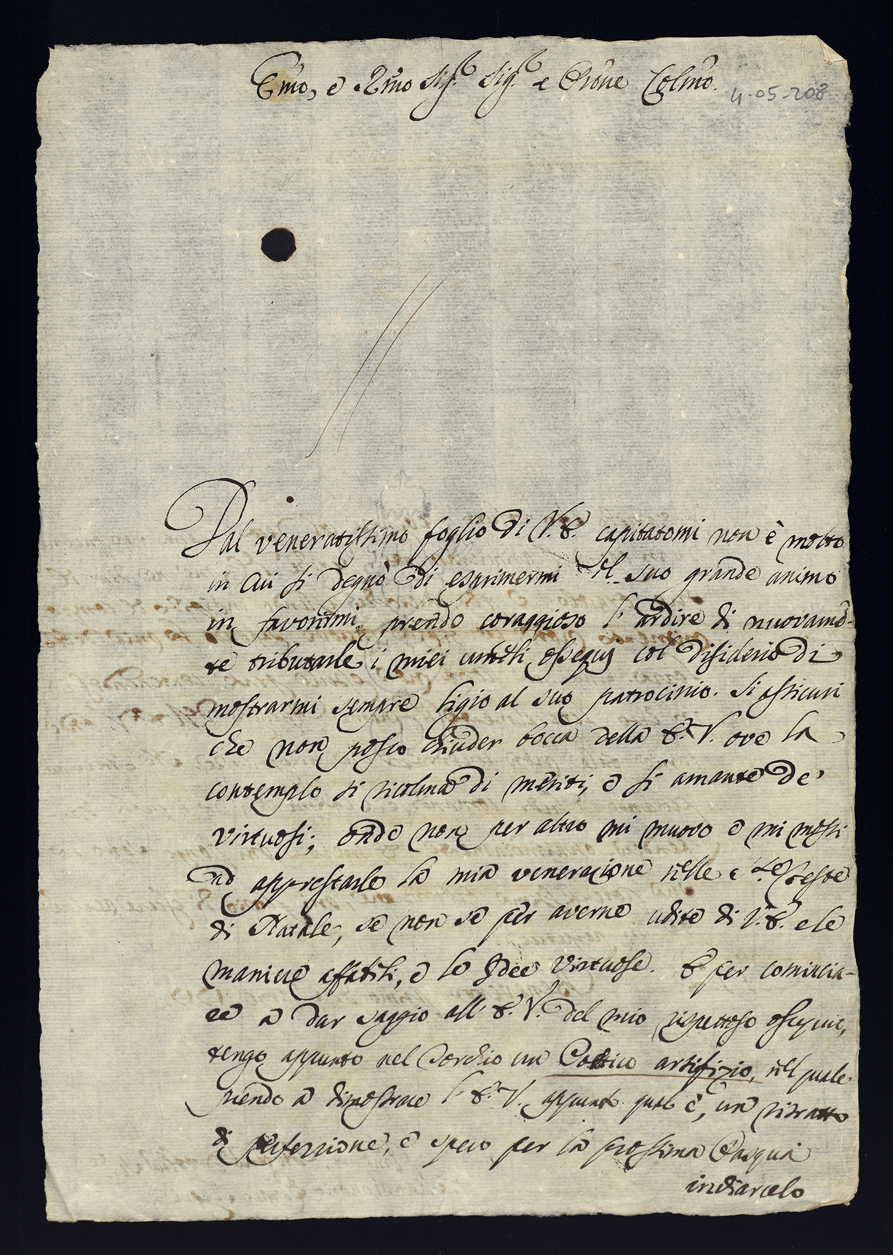 Em̃o, e Rm̃o Sig.r Sig.r e Prõne Colmõ.
4-05-208
Dal veneratissimo foglio di V. E. capitatomi non è molto
in cui si degnò di esprimermi il suo grande animo
in favorirmi, prendo coraggioso l'ardire di nuovamẽ-
te tributarle i miei umili ossequij col disiderio di
mostrarmi sempre ligio al suo patrocinio. Si assicuri
che non posso chiuder bocca della E. V. ove la
contemplo si ricolma di meriti, e si amante de'
virtuosi; onde non per altro mi muovo e mi
ad apprestarle la mia venerazione nelle Feste
di Natale, se non se per averne udite di V. E. e le
maniere affabili, e le Idee virtuose. E per comincia-
re a dar saggio all'E. V. del mio rispettoso ossequio,
tengo appunto nel Torchio un Poetico artifizio, nel quale
prendo a dimostrare l'E. V. appunto qual'è, un ritratto
di perfezzione, e spero per la prossima Pasqua
indiarcelo